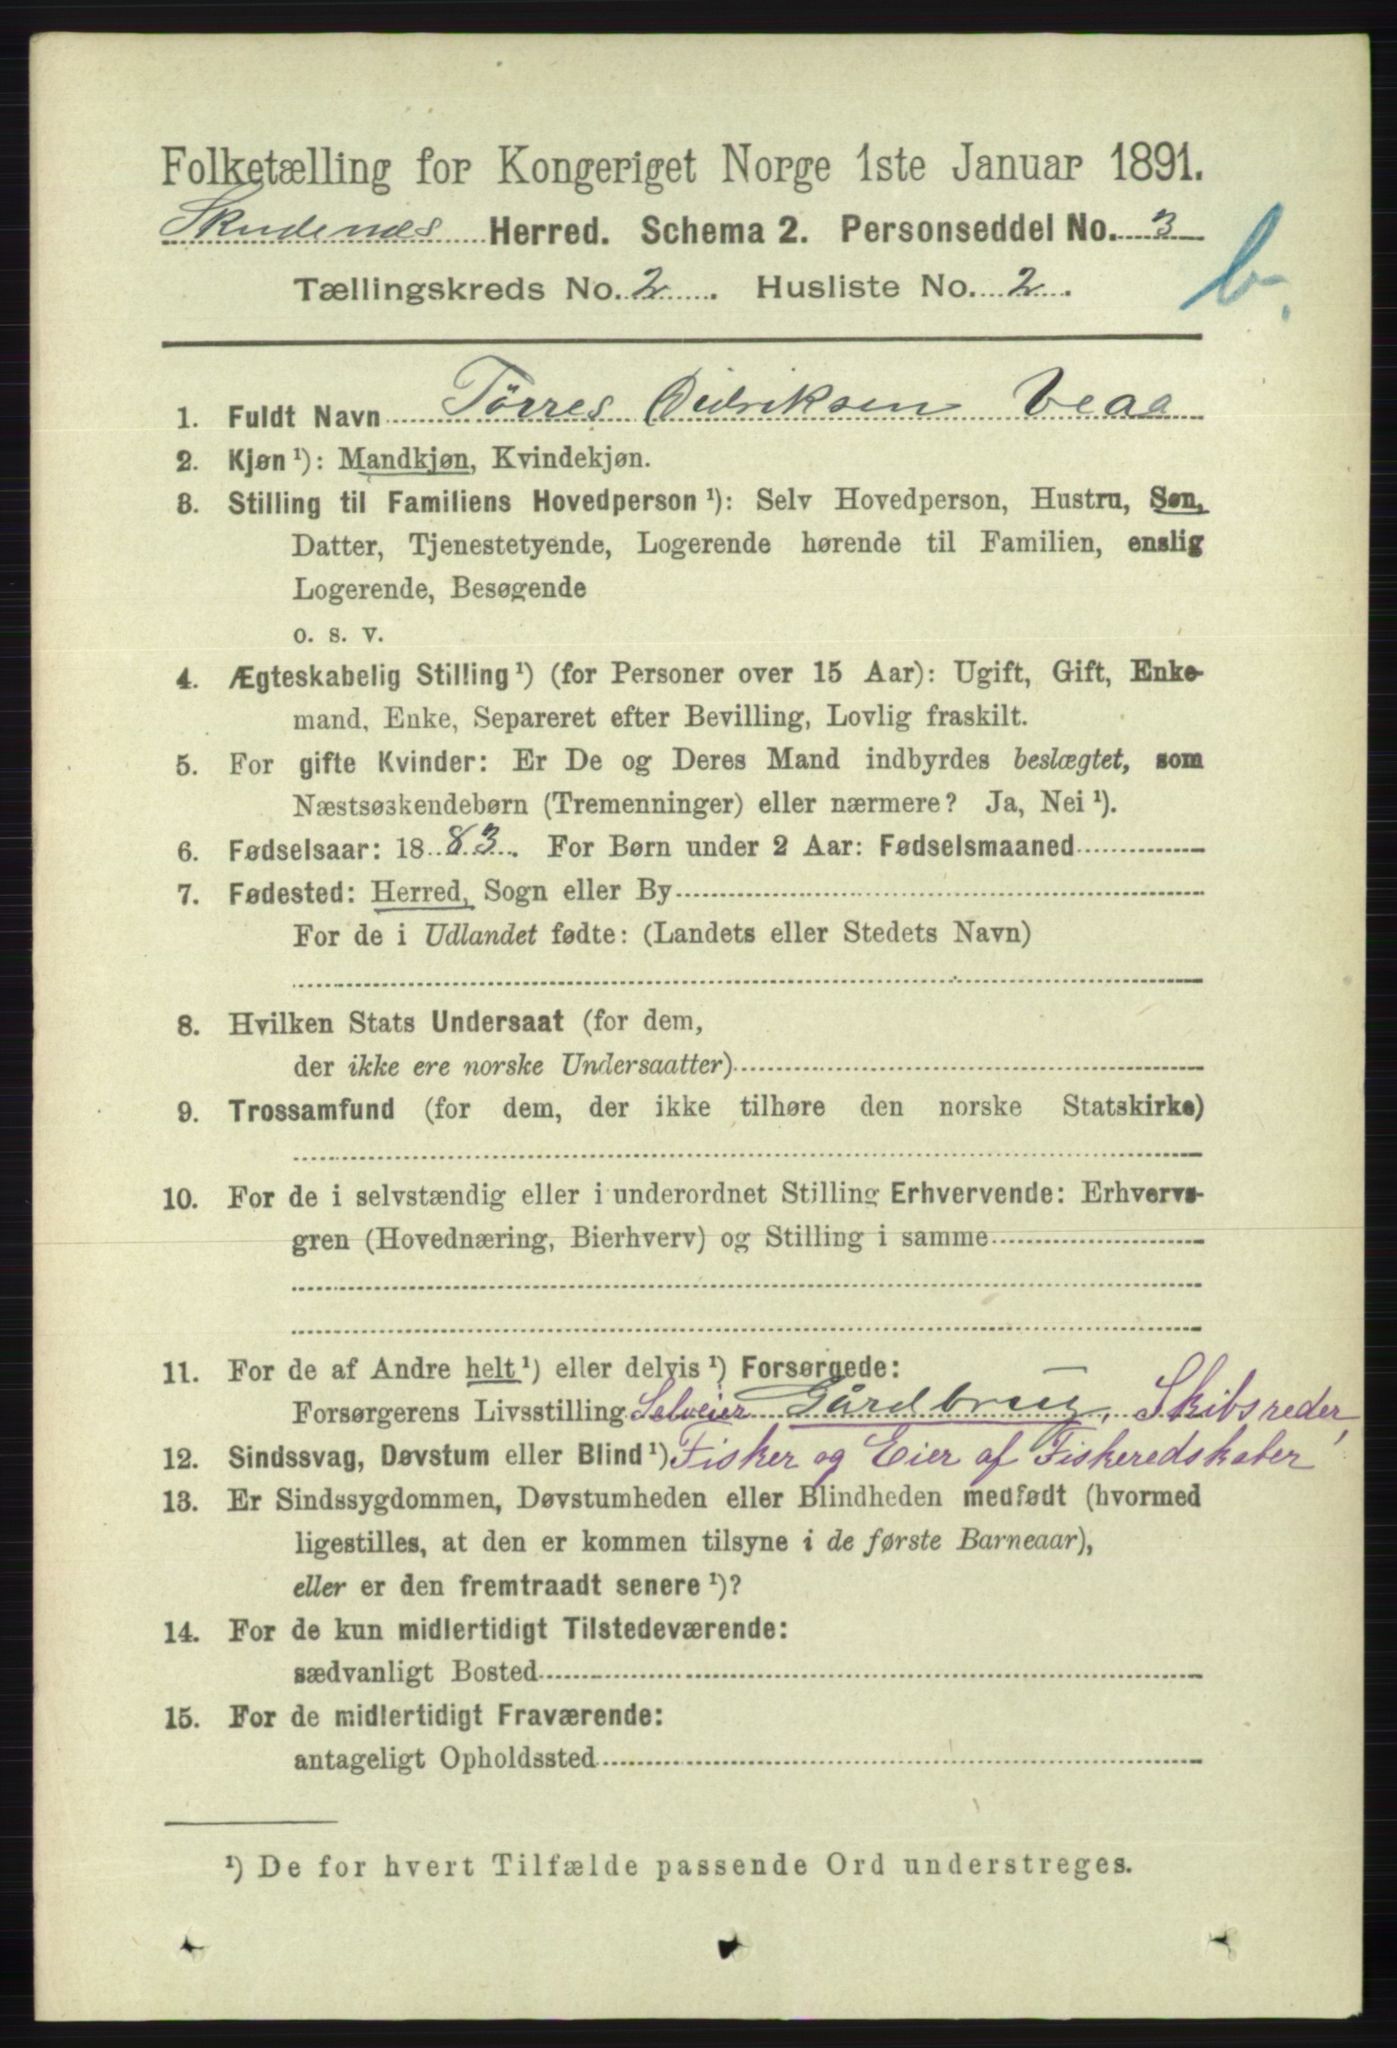 Folketælling for Kongeriget Norge 1ste Januar 1891.
Skudenes Herred. Schema 2. Personseddel No. 3
Tællingskreds No. 2. Husliste No. 2.
b.
1. Fuldt Navn Tørres Didriksen Veaa
2. Kjøn ¹): Mandkjøn, Kvindekjøn.
3. Stilling til Familiens Hovedperson ¹): Selv Hovedperson, Hustru, Søn,
Datter, Tjenestetyende, Logerende hørende til Familien, enslig
Logerende, Besøgende
o. s. v.
4. Ægteskabelig Stilling ¹) (for Personer over 15 Aar): Ugift, Gift, Enke-
mand, Enke, Separeret efter Bevilling, Lovlig fraskilt.
5. For gifte Kvinder: Er De og Deres Mand indbyrdes beslægtet, som
Næstsøskendebørn (Tremenninger) eller nærmere? Ja, Nei ¹).
6. Fødselsaar: 1883. For Børn under 2 Aar: Fødselsmaaned
7. Fødested: Herred, Sogn eller By
For de i Udlandet fødte: (Landets eller Stedets Navn)
8. Hvilken Stats Undersaat (for dem,
der ikke ere norske Undersaatter)
9. Trossamfund (for dem, der ikke tilhøre den norske Statskirke)
10. For de i selvstændig eller i underordnet Stilling Erhvervende: Erhvervs-
gren (Hovednæring, Bierhverv) og Stilling i samme
11. For de af Andre helt ¹) eller delvis ¹) Forsørgede:
Forsørgerens Livsstilling Selveier Gårdbrug, Skibsreder,
12. Sindssvag, Døvstum eller Blind ¹) Fisker og Eier af Fiskeredskaber
13. Er Sindssygdommen, Døvstumheden eller Blindheden medfødt (hvormed
ligestilles, at den er kommen tilsyne i de første Barneaar),
eller er den fremtraadt senere ¹)?
14. For de kun midlertidigt Tilstedeværende:
sædvanligt Bosted
15. For de midlertidigt Fraværende:
antageligt Opholdssted
¹) De for hvert Tilfælde passende Ord understreges.